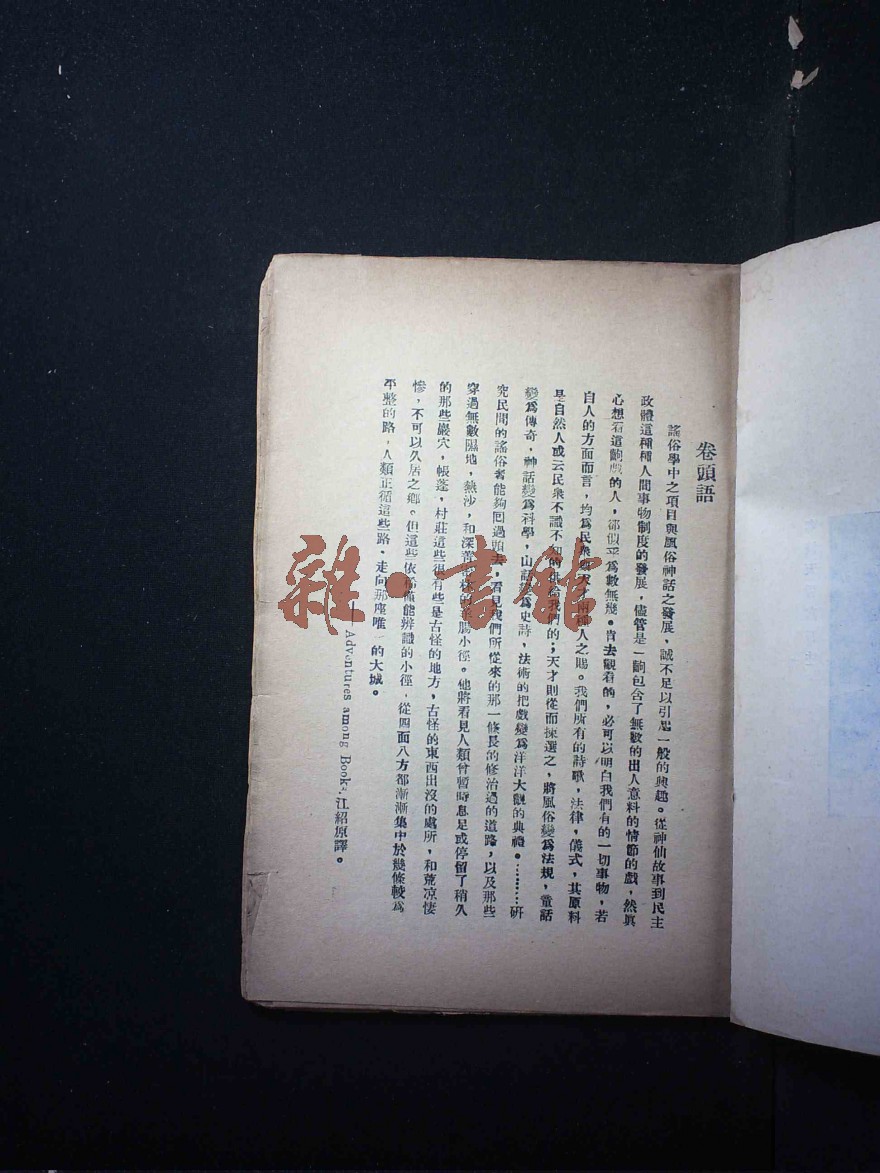 卷頭語
謠俗學中之項目與風俗神話之發展，誠不足以引起一般的興趣。從神仙故事到民主
政體這種種人間事物制度的發展，儘管是一齣包含了無數的出人意料的情節的戲，然眞
心想看這齣戲的人，卻似乎爲數無幾。肯去觀看的，必可以明白我們有的一切事物，若
自人的方面而言，均爲民衆與天才兩種人之賜。我們所有的詩歌，法律，儀式，其原料
是自然人或云民衆不識不知的供給我們的；天才則從而揀選之，將風俗變爲法規，童話
變爲傳奇，神話變爲科學，山話變爲史詩，法術的把戲變爲洋洋大觀的典禮。………研
究民間的謠俗者能夠回過頭去，看見我們所從來的那一條長的修治過的道路，以及那些
穿過無數隰地，熱沙，和深菁的羊腸小徑。他將看見人類曾暫時息足或停留了稍久
的那些巖穴，帳蓬，村莊這些很有些是古怪的地方，古怪的東西出沒的處所，和荒凉悽
慘，不可以久居之鄉。但這些依稀僅能辨識的小徑，從四面八方都漸漸集中於幾條較爲
平整的路，人類正循這些路，走向那座唯一的大城。
——Adventures among Books，江紹原譯。
雜·書館